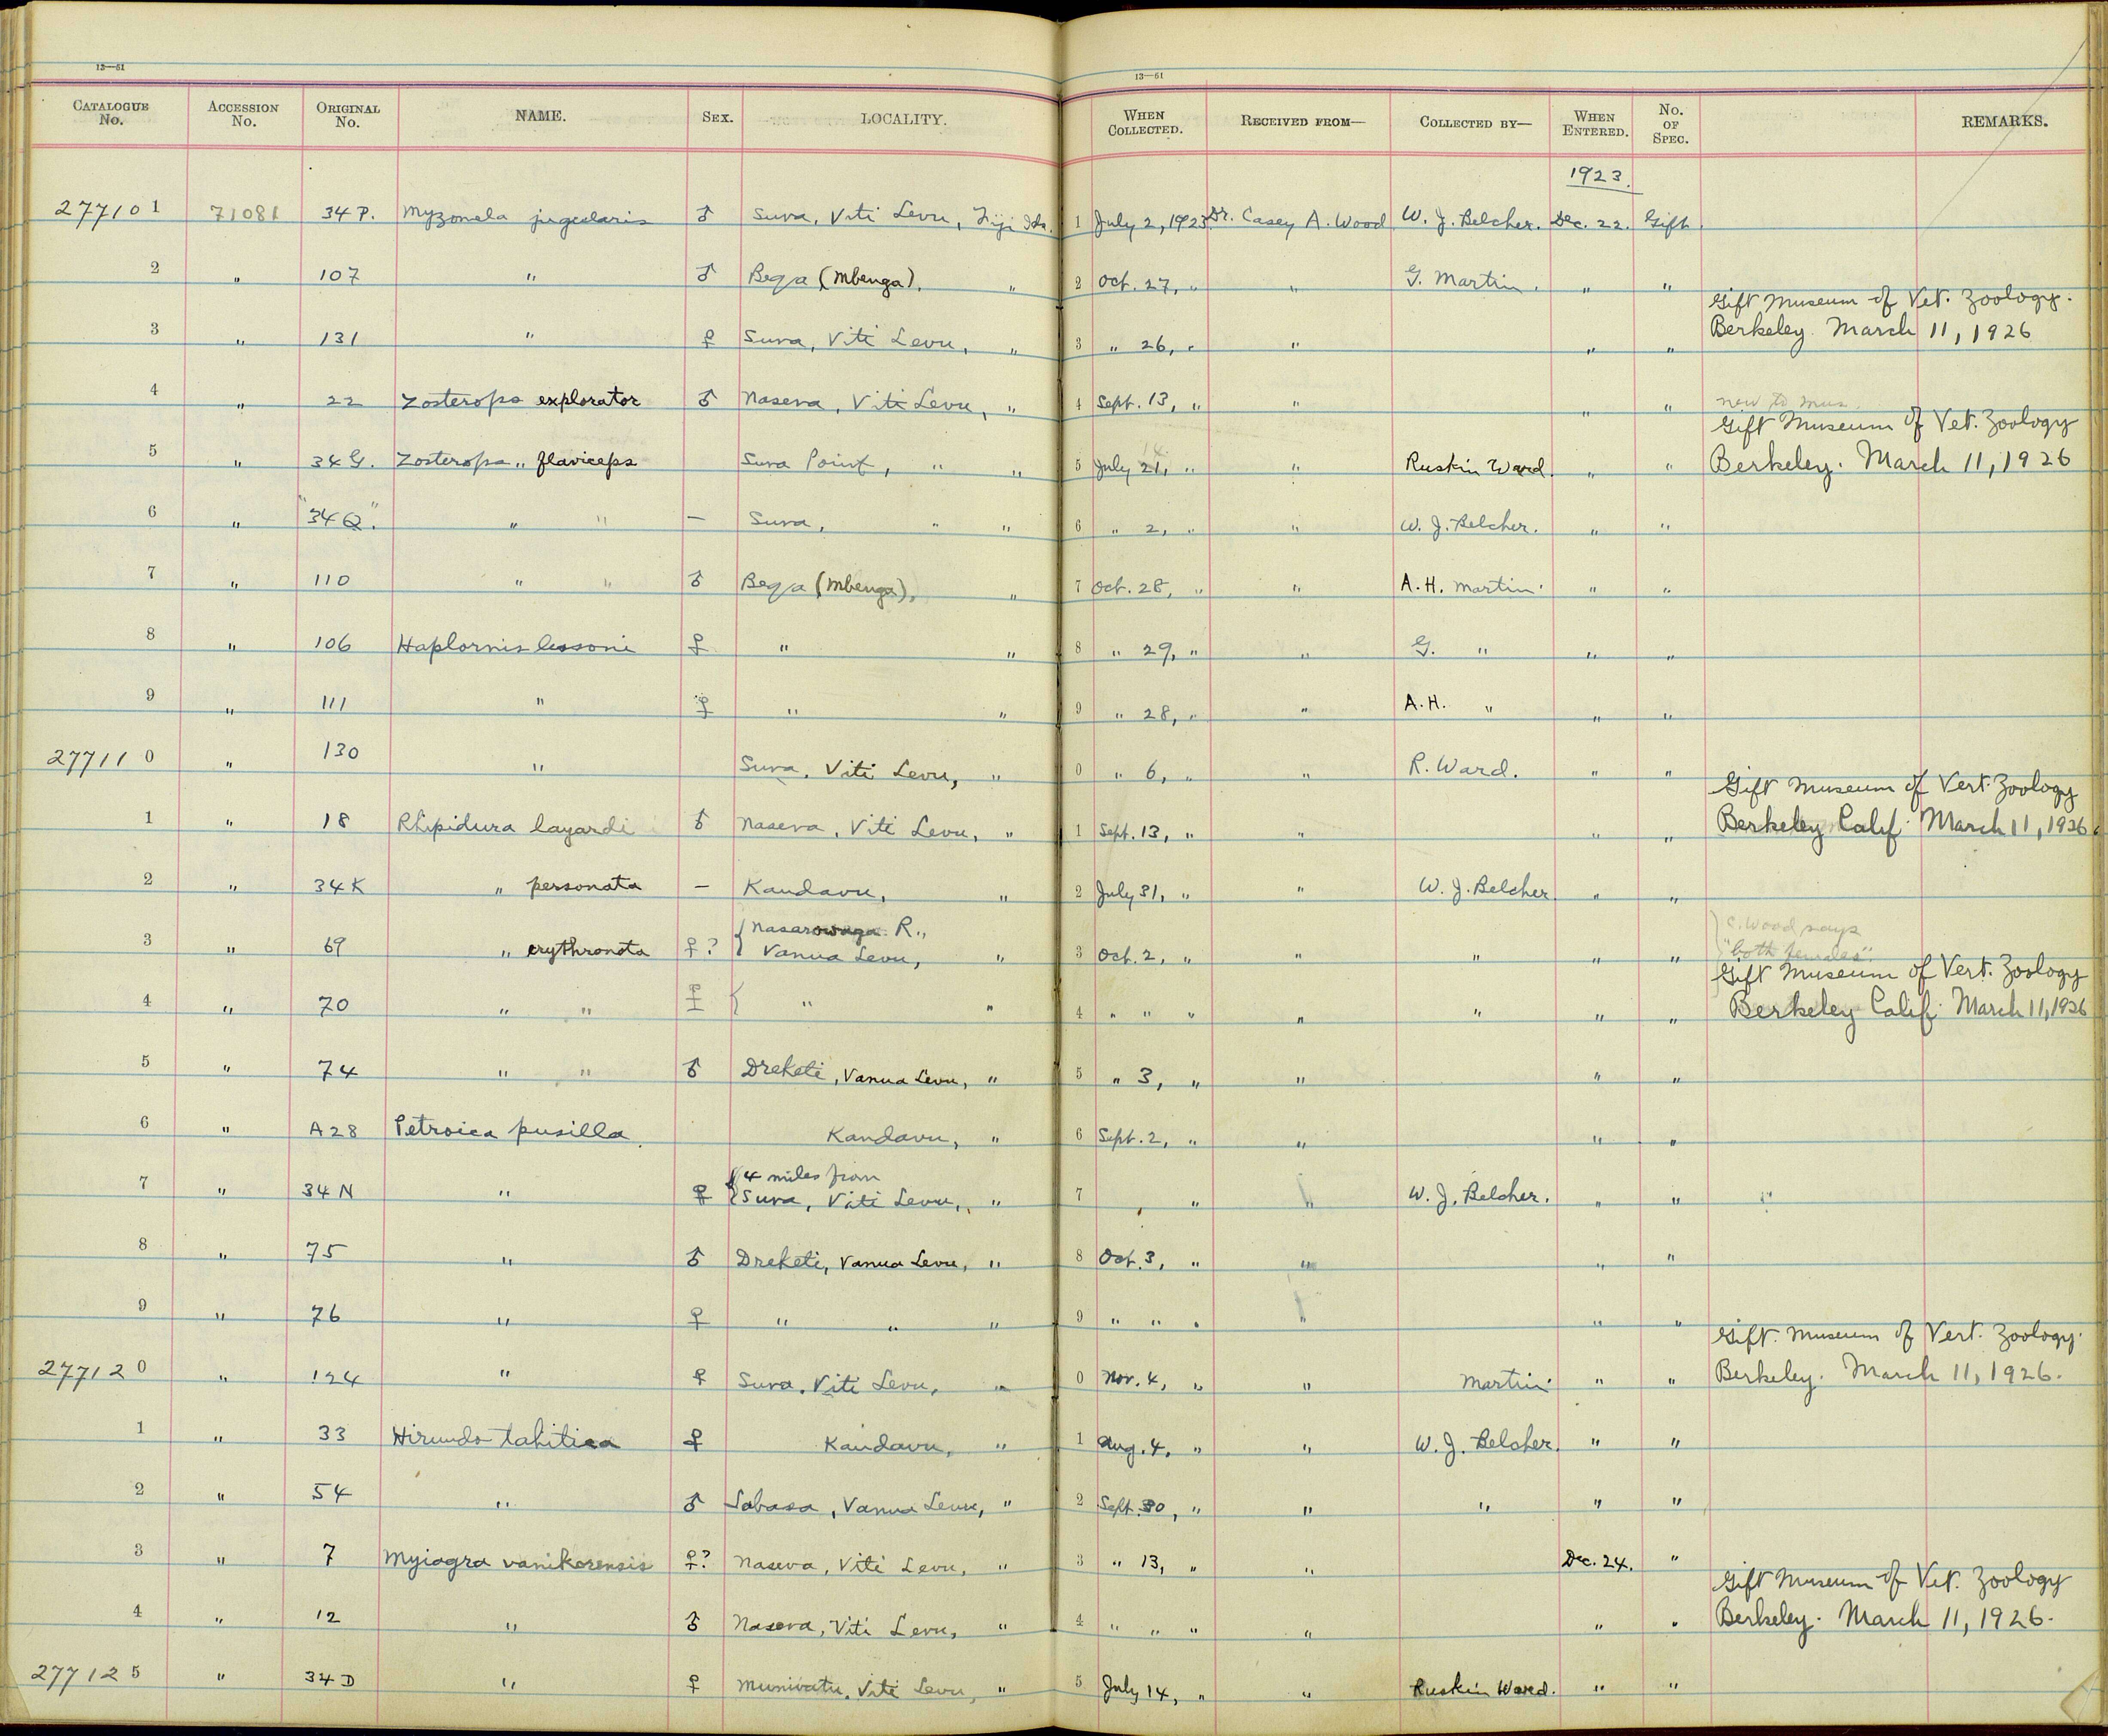 13—61 13—61
CATALOGUE No. ACCESSION No. ORIGINAL No. NAME. SEX. LOCALITY. WHEN COLLECTED. RECEIVED FROM— COLLECTED BY— WHEN ENTERED. No. OF SPEC. REMARKS.
1923.
277101 71081 34 P. Myzomela jugularis ♂ Suva, Viti Levu, Fiji Ids. 1 July 2, 1923 Dr. Casey A. Wood W. J. Belcher. Dec. 22. Gift.
2 " 107 " ♂ Beqa (Mbenga), " 2 Oct. 27, " " G. Martin. " "
Gift Museum of Vet. Zoology.
3 " 131 " ♀ Suva, Viti Levu, " 3 " 26, " " " " Berkeley. March 11, 1926
4 " 22 Zosterops explorator ♂ Naseva, Viti Levu, " 4 Sept. 13, " " " " new to mus.
Gift Museum of Vet. Zoology
14.
5 " 34 G. Zosterops " flaviceps Suva Point, " " 5 July 21, " " Ruskin Ward. " " Berkeley. March 11, 1926
6 " "34 Q." " " — Suva, " " 6 " 2, " " W. J. Belcher. " "
7 " 110 " " ♂ Beqa (Mbenga), " 7 Oct. 28, " " A. H. Martin. " "
8 " 106 Haplornis lessoni ♀ " " 8 " 29, " " G. " " "
9 " 111 " ♀ " " 9 " 28, " " A. H. " " "
277110 " 130 " Suva, Viti Levu, " 0 " 6, " " R. Ward. " "
Gift Museum of Vert. Zoology
1 " 18 Rhipidura layardi ♂ Naseva, Viti Levu, " 1 Sept. 13, " " " " Berkeley Calif. March 11, 1926.
2 " 34 K " personata — Kandavu, " 2 July 31, " " W. J. Belcher " "
Nasarowaqa R., C. Wood says
3 " 69 " erythronota ♀? Vanua Levu, " 3 Oct. 2, " " " " " "both females".
Gift Museum of Vert. Zoology
4 " 70 " " ♀ " " 4 " " " " " " " Berkeley Calif. March 11, 1926
5 " 74 " " ♂ Dreketi, Vanua Levu, " 5 " 3, " " " "
6 " A 28 Petroica pusilla. Kandavu, " 6 Sept. 2, " " " "
4 miles from
7 " 34 N " ♀ Suva, Viti Levu, " 7 " " W. J. Belcher. " "
8 " 75 " ♂ Dreketi, Vanua Levu, " 8 Oct. 3, " " " "
9 " 76 " ♀ " " " 9 " " " " " "
Gift. Museum of Vert. Zoology.
277120 " 124 " ♀ Suva, Viti Levu, " 0 Nov. 4, " " Martin. " " Berkeley. March 11, 1926.
1 " 33 Hirundo tahitica ♀ Kandavu, " 1 Aug. 4, " " W. J. Belcher. " "
2 " 54 " ♂ Labasa, Vanua Levu, " 2 Sept. 30, " " " " "
3 " 7 Myiagra vanikorensis ♀? Naseva, Viti Levu, " 3 " 13, " " Dec. 24. "
Gift Museum of Vet. Zoology
4 " 12 " ♂ Naseva, Viti Levu, " 4 " " " " " " Berkeley. March 11, 1926.
277125 " 34 D " ♀ Munivatu, Viti Levu, " 5 July 14, " " Ruskin Ward. " "